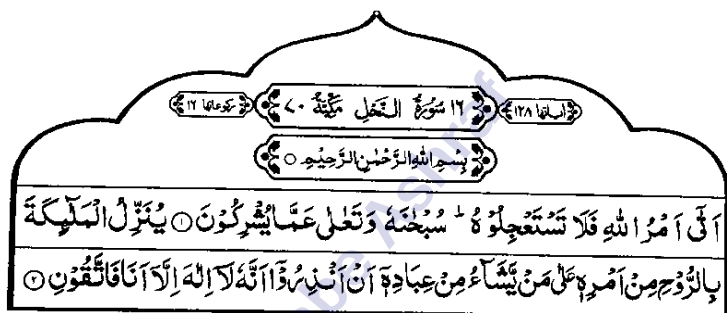 اٰیاتها ۱۲۸ ۱۶ سُوْرَةُ النَّحْلِ مَكِّيَّةٌ ۷۰ رکوعاتها ۱۶
بِسْمِ اللّٰهِ الرَّحْمٰنِ الرَّحِيْمِ ○
اَتٰۤى اَمْرُ اللّٰهِ فَلَا تَسْتَعْجِلُوْهُ ؕ سُبْحٰنَهٗ وَتَعٰلٰى عَمَّا يُشْرِكُوْنَ ۝۱ يُنَزِّلُ الْمَلٰٓئِكَةَ
بِالرُّوْحِ مِنْ اَمْرِهٖ عَلٰى مَنْ يَّشَآءُ مِنْ عِبَادِهٖۤ اَنْ اَنْذِرُوْۤا اَنَّهٗ لَاۤ اِلٰهَ اِلَّاۤ اَنَا فَاتَّقُوْنِ ۝۲